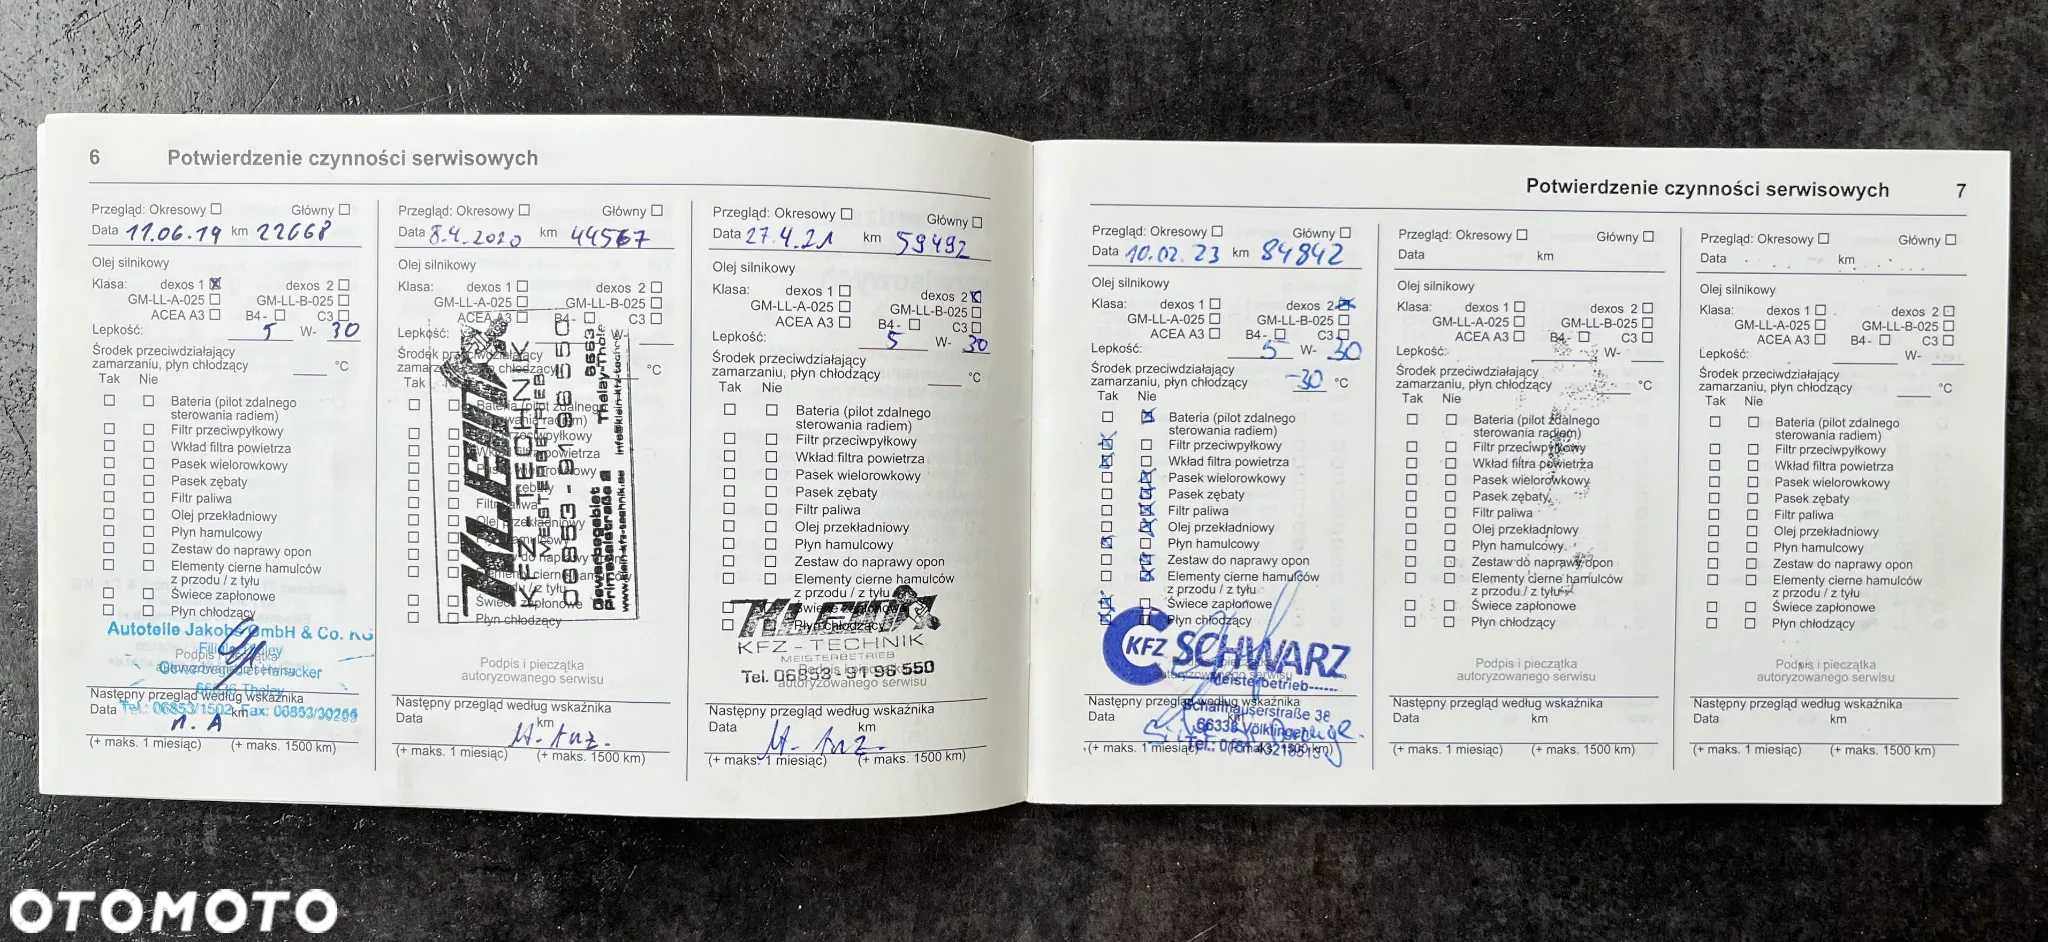 6 Potwierdzenie czynności serwisowych
Przegląd: Okresowy Główny
Data 11.06.19 km 22668
Olej silnikowy
Klasa: dexos 1 dexos 2
GM-LL-A-025 GM-LL-B-025
ACEA A3 B4- C3
Lepkość: 5 W- 30
Środek przeciwdziałający
zamarzaniu, płyn chłodzący °C
Tak Nie
Bateria (pilot zdalnego
sterowania radiem)
Filtr przeciwpyłkowy
Wkład filtra powietrza
Pasek wielorowkowy
Pasek zębaty
Filtr paliwa
Olej przekładniowy
Płyn hamulcowy
Zestaw do naprawy opon
Elementy cierne hamulców
z przodu / z tyłu
Świece zapłonowe
Płyn chłodzący
Autoteile Jakobs GmbH & Co. KG
Podpis i pieczątka
autoryzowanego serwisu
Następny przegląd według wskaźnika
Data Tel.: 06853/1502 km Fax: 06853/30266
(+ maks. 1 miesiąc) (+ maks. 1500 km)
Przegląd: Okresowy Główny
Data 8.4.2020 km 44567
Olej silnikowy
Klasa: dexos 1 dexos 2
GM-LL-A-025 GM-LL-B-025
ACEA A3 B4- C3
Lepkość: W-
Środek przeciwdziałający
zamarzaniu, płyn chłodzący °C
Tak Nie
Bateria (pilot zdalnego
sterowania radiem)
Filtr przeciwpyłkowy
Wkład filtra powietrza
Pasek wielorowkowy
Pasek zębaty
Filtr paliwa
Olej przekładniowy
Płyn hamulcowy
Zestaw do naprawy opon
Elementy cierne hamulców
z przodu / z tyłu
Świece zapłonowe
Płyn chłodzący
KLEIN
KFZ-TECHNIK
MEISTERBETRIEB
06853-9196550
Gewerbegebiet
Primstalstraße 2
www.klein-kfz-technik.de
Podpis i pieczątka
autoryzowanego serwisu
Następny przegląd według wskaźnika
Data km
(+ maks. 1 miesiąc) (+ maks. 1500 km)
Przegląd: Okresowy Główny
Data 27.4.21 km 59492
Olej silnikowy
Klasa: dexos 1 dexos 2
GM-LL-A-025 GM-LL-B-025
ACEA A3 B4- C3
Lepkość: 5 W- 30
Środek przeciwdziałający
zamarzaniu, płyn chłodzący °C
Tak Nie
Bateria (pilot zdalnego
sterowania radiem)
Filtr przeciwpyłkowy
Wkład filtra powietrza
Pasek wielorowkowy
Pasek zębaty
Filtr paliwa
Olej przekładniowy
Płyn hamulcowy
Zestaw do naprawy opon
Elementy cierne hamulców
z przodu / z tyłu
Świece zapłonowe
Płyn chłodzący
KLEIN
KFZ-TECHNIK
MEISTERBETRIEB
Tel. 06853-91 96 550
Podpis i pieczątka
autoryzowanego serwisu
Następny przegląd według wskaźnika
Data km
(+ maks. 1 miesiąc) (+ maks. 1500 km)
Potwierdzenie czynności serwisowych 7
Przegląd: Okresowy Główny
Data 10.02.23 km 84842
Olej silnikowy
Klasa: dexos 1 dexos 2
GM-LL-A-025 GM-LL-B-025
ACEA A3 B4- C3
Lepkość: 5 W- 30
Środek przeciwdziałający
zamarzaniu, płyn chłodzący -30 °C
Tak Nie
Bateria (pilot zdalnego
sterowania radiem)
Filtr przeciwpyłkowy
Wkład filtra powietrza
Pasek wielorowkowy
Pasek zębaty
Filtr paliwa
Olej przekładniowy
Płyn hamulcowy
Zestaw do naprawy opon
Elementy cierne hamulców
z przodu / z tyłu
Świece zapłonowe
Płyn chłodzący
KFZ SCHWARZ
Podpis i pieczątka
autoryzowanego serwisu
Meisterbetrieb
Następny przegląd według wskaźnika
Schaffhauserstraße 38
Data km
66333 Völklingen
(+ maks. 1 miesiąc) (+ maks. 1500 km)
Przegląd: Okresowy Główny
Data km
Olej silnikowy
Klasa: dexos 1 dexos 2
GM-LL-A-025 GM-LL-B-025
ACEA A3 B4- C3
Lepkość: W-
Środek przeciwdziałający
zamarzaniu, płyn chłodzący °C
Tak Nie
Bateria (pilot zdalnego
sterowania radiem)
Filtr przeciwpyłkowy
Wkład filtra powietrza
Pasek wielorowkowy
Pasek zębaty
Filtr paliwa
Olej przekładniowy
Płyn hamulcowy
Zestaw do naprawy opon
Elementy cierne hamulców
z przodu / z tyłu
Świece zapłonowe
Płyn chłodzący
Podpis i pieczątka
autoryzowanego serwisu
Następny przegląd według wskaźnika
Data km
(+ maks. 1 miesiąc) (+ maks. 1500 km)
Przegląd: Okresowy Główny
Data km
Olej silnikowy
Klasa: dexos 1 dexos 2
GM-LL-A-025 GM-LL-B-025
ACEA A3 B4- C3
Lepkość: W-
Środek przeciwdziałający
zamarzaniu, płyn chłodzący °C
Tak Nie
Bateria (pilot zdalnego
sterowania radiem)
Filtr przeciwpyłkowy
Wkład filtra powietrza
Pasek wielorowkowy
Pasek zębaty
Filtr paliwa
Olej przekładniowy
Płyn hamulcowy
Zestaw do naprawy opon
Elementy cierne hamulców
z przodu / z tyłu
Świece zapłonowe
Płyn chłodzący
Podpis i pieczątka
autoryzowanego serwisu
Następny przegląd według wskaźnika
Data km
(+ maks. 1 miesiąc) (+ maks. 1500 km)
OTOMOTO